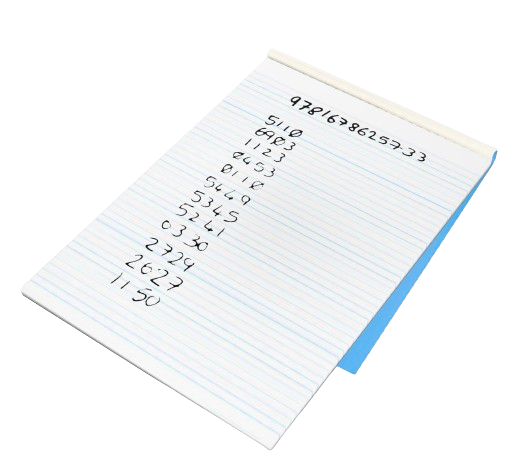 9781678625733
5110
6903
1123
0453
0110
5449
5345
5241
0330
2729
2627
1150